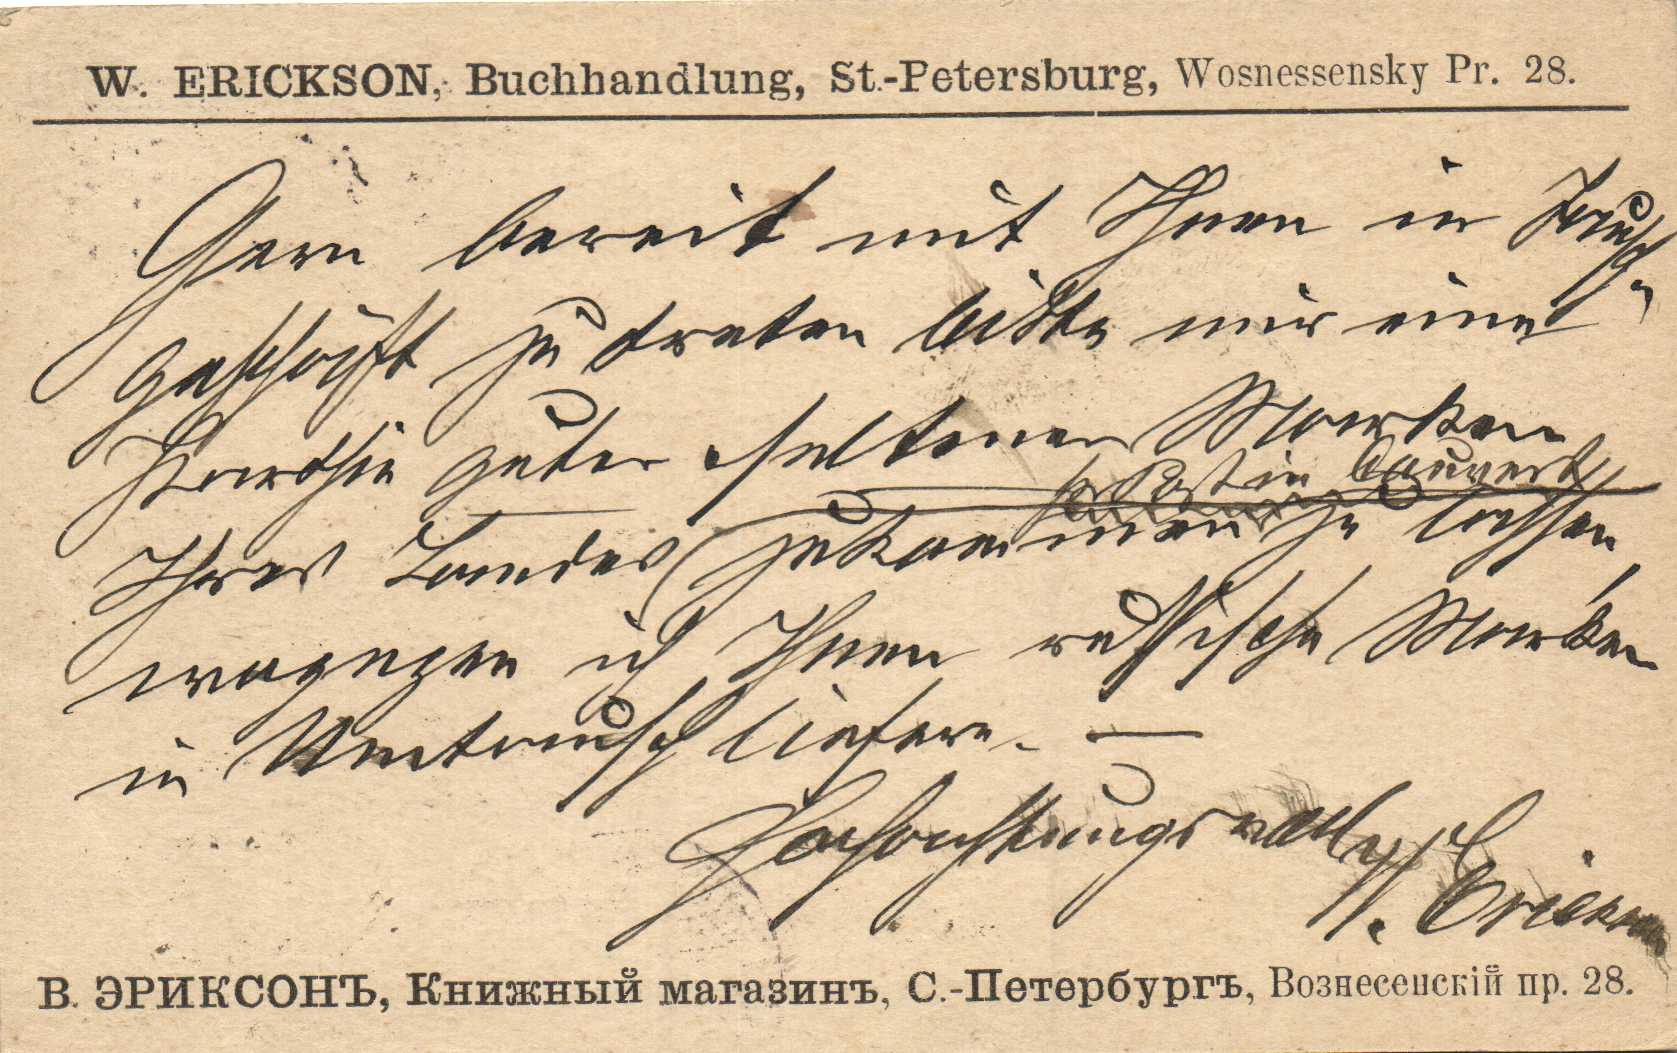 W. ERICKSON, Buchhandlung, St.-Petersburg, Wosnessensky Pr. 28.
Gern bereit mit Ihnen in Tausch-
geschäft zu treten bitte mir eine
Parthie guter seltener Marken
pr Post in Couvert
Ihres Landes zukommen zu lassen,
wogegen ich Ihnen russische Marken
in Umtausch liefere. —
Hochachtungsvoll W. Erickson
В. ЭРИКСОНЪ, Книжный магазинъ, С.-Петербургъ, Вознесенскій пр. 28.